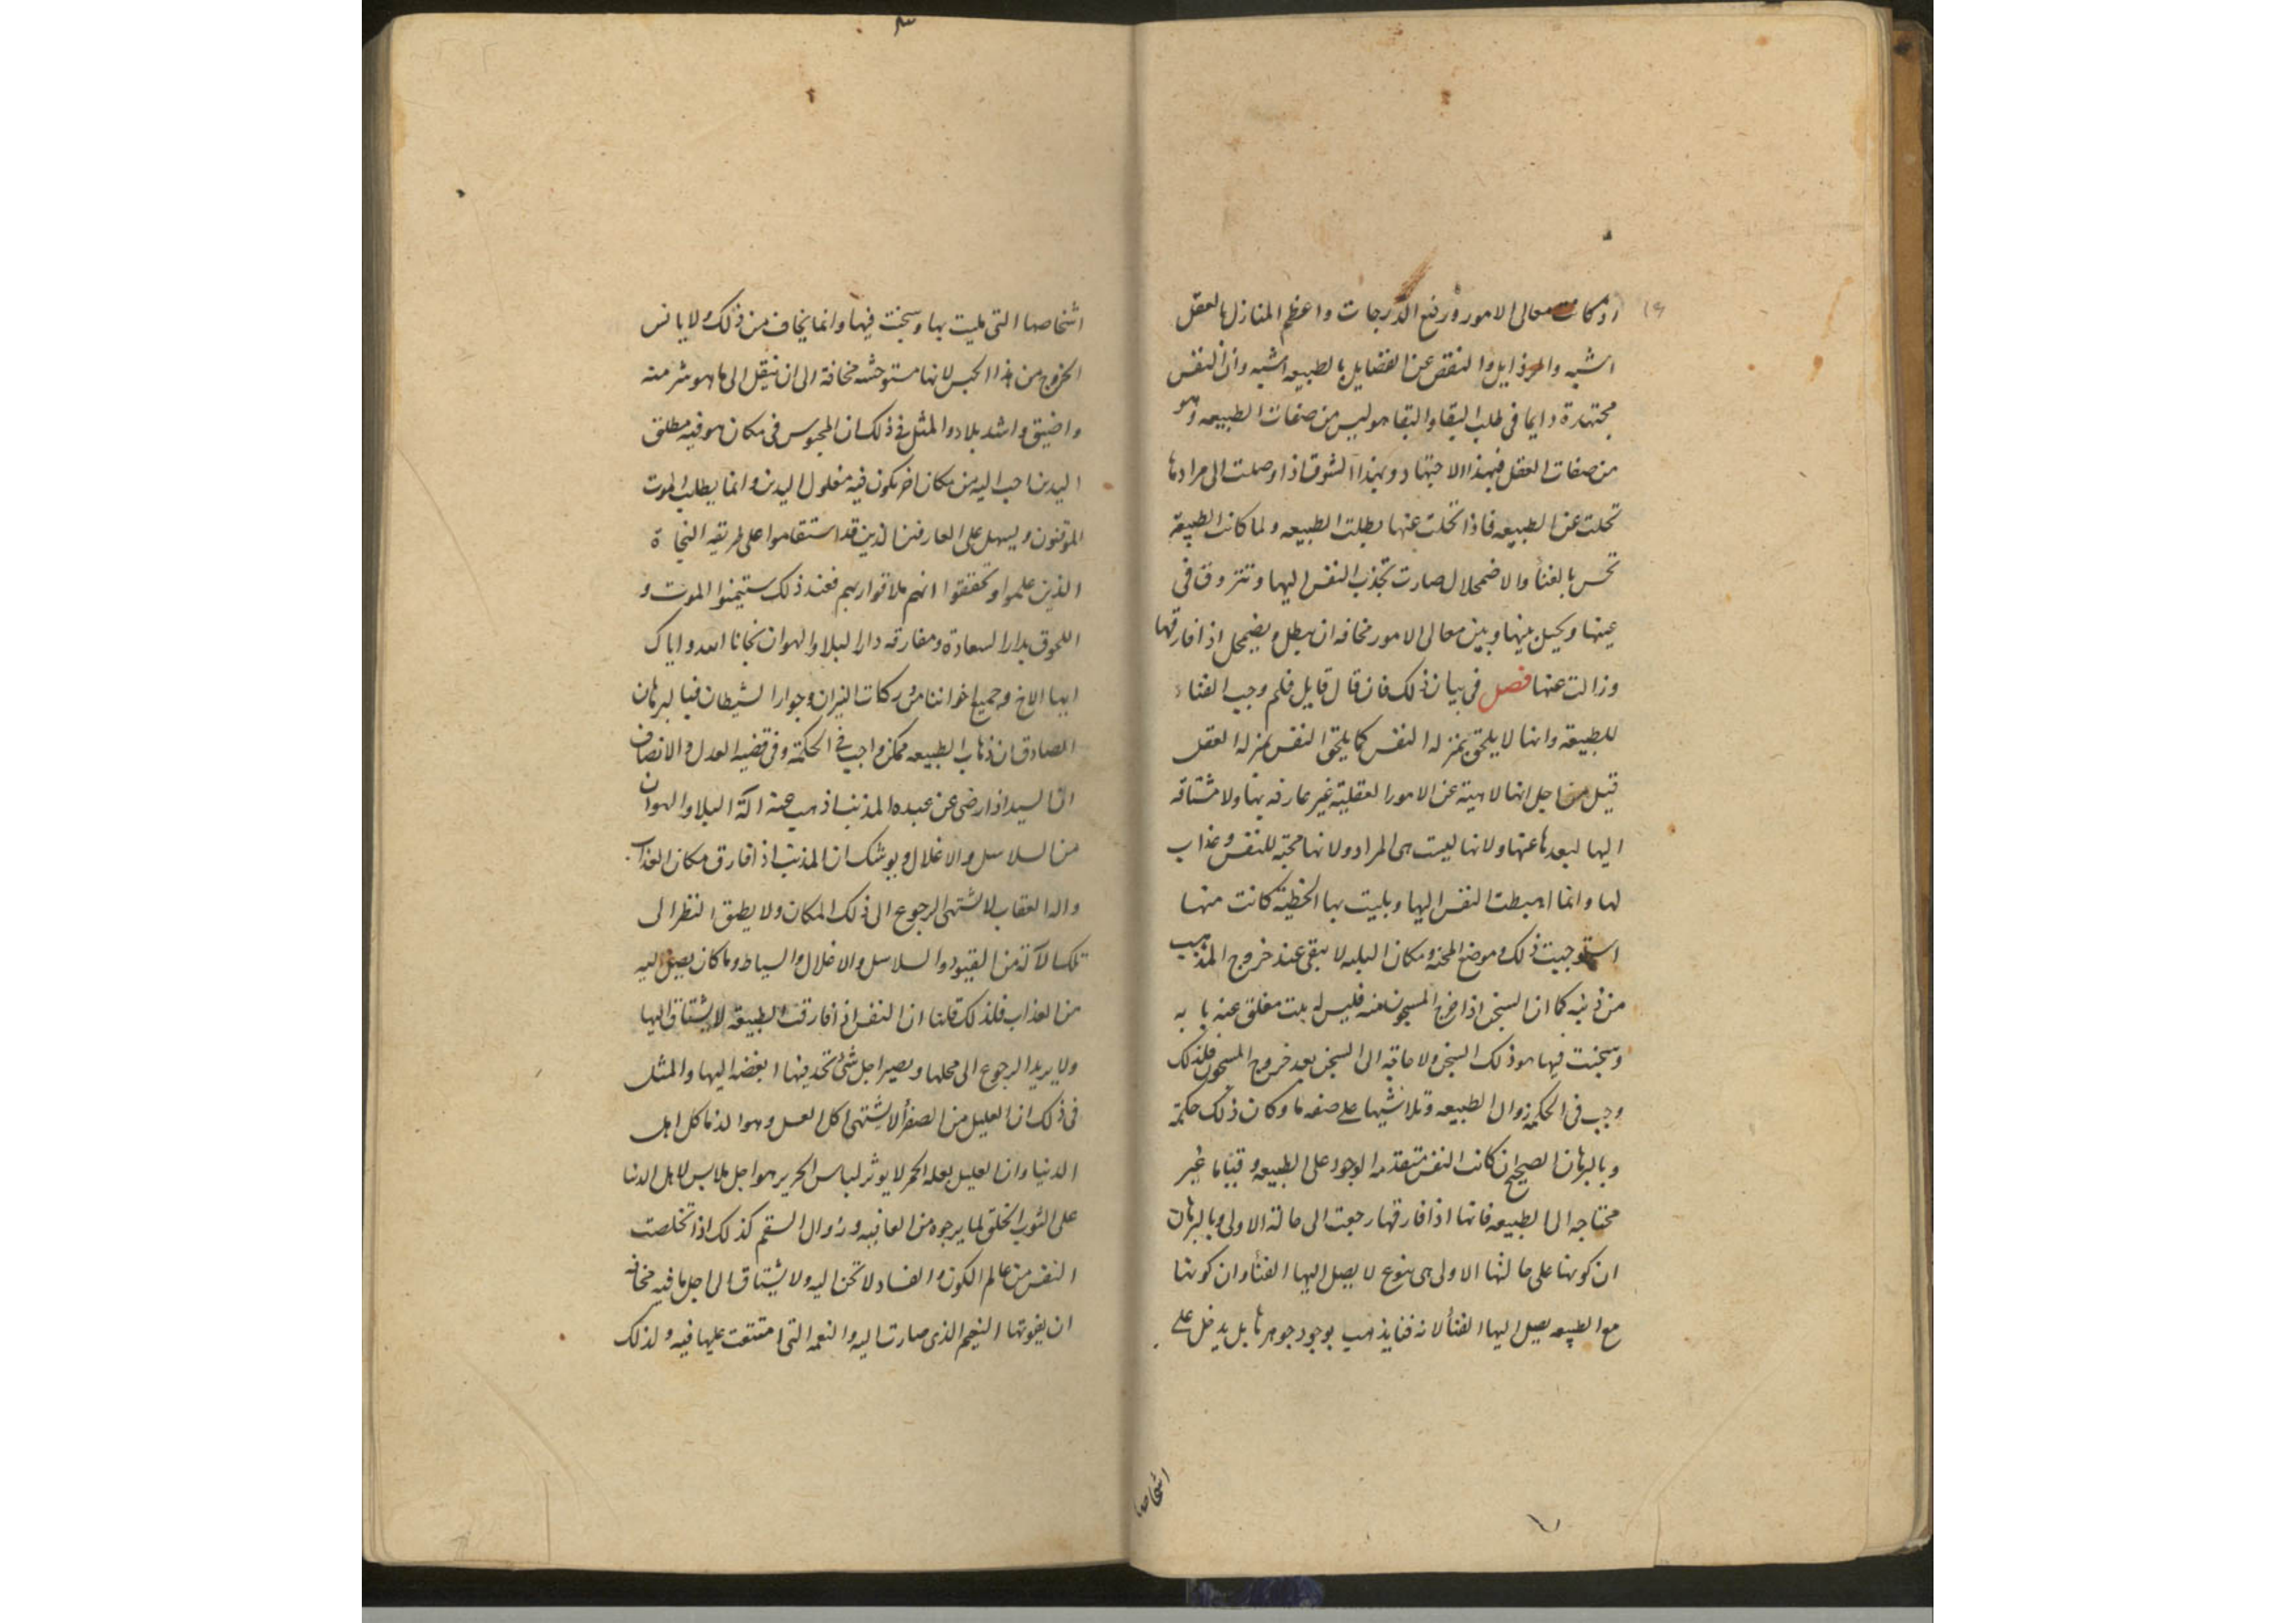 اذ كانت معالى الامور ورفع الدرجات واعظم المنازل بالعقل
اشبه والرذايل والنقص عن الفضايل بالطبيعه اشبه وان النفس
مجتهدة دايما فى طلب البقا والبقا هو ليس من صفات الطبيعه وهو
من صفات العقل فبهذا الاجتهاد وبهذا الشوق اذا وصلت الى مرادها
تخلت عن الطبيعه فاذا تخلت عنها بطلت الطبيعه ولما كانت الطبيعة
تحس بالفنأ والاضمحلال صارت تجذب النفس اليها وتتزوق فى
عينها ويحيل بينها وبين معالى الامور مخافه ان يبطل ويضمحل اذا فارقتها
وزالت عنها فصل فى بيان ذلك فان قال قايل فلم وجب الفناء
للطبيعة وانها لا يلحق بمنزله النفس كما يلحق النفس بمنزله العقل
قيل من اجل انها لاهية عن الامور العقلية غير عارفه بها ولا مشتاقه
اليها لبعدها عنها ولانها ليست هى المراد ولانها محنة للنفس وعذاب
لها وانما اهبطت النفس اليها وبليت بها الخطية كانت منها
استوجبت ذلك وموضع المحنة ومكان البليه لا يبقى عند خروج المذنب
من ذنبه كما ان السجن اذا خرج المسجون منه فليس له بيت مغلق عنه بابه
وسجنت فيها هو ذلك السجن ولا حاجة الى السجن بعد خروج المسجون فلذلك
وجب فى الحكمة زوال الطبيعه وتلاشيها على صفه ما وكان ذلك حكمة
وبالبرهان الصحيح ان كانت النفس متقدمه الوجود على الطبيعه وقبلها غير
محتاجه الى الطبيعه فانها اذا فارقتها رجعت الى حالة الاولى وبالبرهان
ان كونها على حالتها الاولى هى بنوع لا يصل اليها الفنأ وان كونها
مع الطبيعه يصل اليها الفنأ لانه فنا يذهب بوجود جوهرها بل يدخل على
اشخاصها
اشخاصها التى بليت بها وسجنت فيها وانما يخاف من ذلك ولا يانس
الخروج من هذا الحبس لانها مستوحشه مخافة الى ان ينتقل الى ما هو شر منه
واضيق واشد بلاد والمثل فى ذلك ان المحبوس فى مكان هو فيه مطلق
اليدين احب اليه من مكان اخر يكون فيه مغلول اليدين وانما يطلب الموت
الموقنون ويسهل على العارفين الذين قد استقاموا على طريقه النجاة
الذين علموا وتحققوا انهم ملاقوا ربهم فعند ذلك ستيمنوا الموت و
اللحوق بدار السعادة ومفارقه دار البلا والهوان نجانا الله واياك
ايها الاخ وجميع اخواننا من دركات النيران وجوار الشيطان فبالبرهان
الصادق ان ذهاب الطبيعه ممكن واجب فى الحكمة وفى قضيه العدل والانصاف
ان السيد اذا رضى عن عبده المذنب اذهب عنه الة البلا والهوان
من السلاسل والاغلال ويوشك ان المذنب اذا فارق مكان العذاب
والة العقاب لا يشتهى الرجوع الى ذلك المكان ولا يطيق النظر الى
تلك الآلة من القيود والسلاسل والاغلال والسياط وما كان يصل اليه
من العذاب فلذلك قلنا ان النفس اذا فارقت الطبيعة لا يشتاق اليها
ولا يريد الرجوع الى محلها ويصير اجل شئ تجد فيها ابغضه اليها والمثل
فى ذلك ان العليل من الصفرأ لا يشتهى اكل العسل وهو الذ ماكل اهل
الدنيا وان العليل بعله الحمر لا يوثر لباس الحرير هو اجل ملابس لاهل الدنيا
على الثوب الخلق لما يرجوه من العافيه وزوال السقم كذلك اذا تخلصت
النفس من عالم الكون والفساد لا تحن اليه ولا يشتاق الى اجل ما فيه مخافه
ان يفوتها النعيم الذى صارت اليه والنعمه التى امتنعت عليها فيه ولذلك